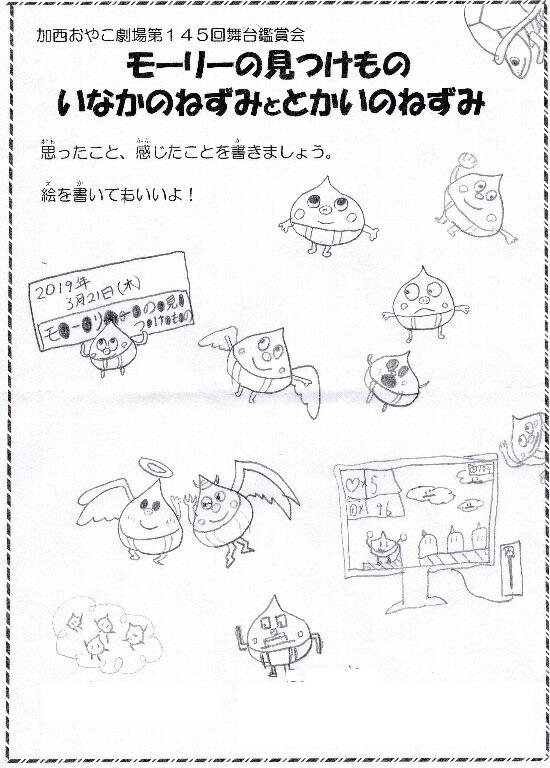 加西おやこ劇場第145回舞台鑑賞会
モーリーの見つけもの
いなかのねずみととかいのねずみ
思ったこと、感じたことを書きましょう。
絵を書いてもいいよ！
2019年
3月21日(木)
モーリーの見
つけもの
♡×5
×96